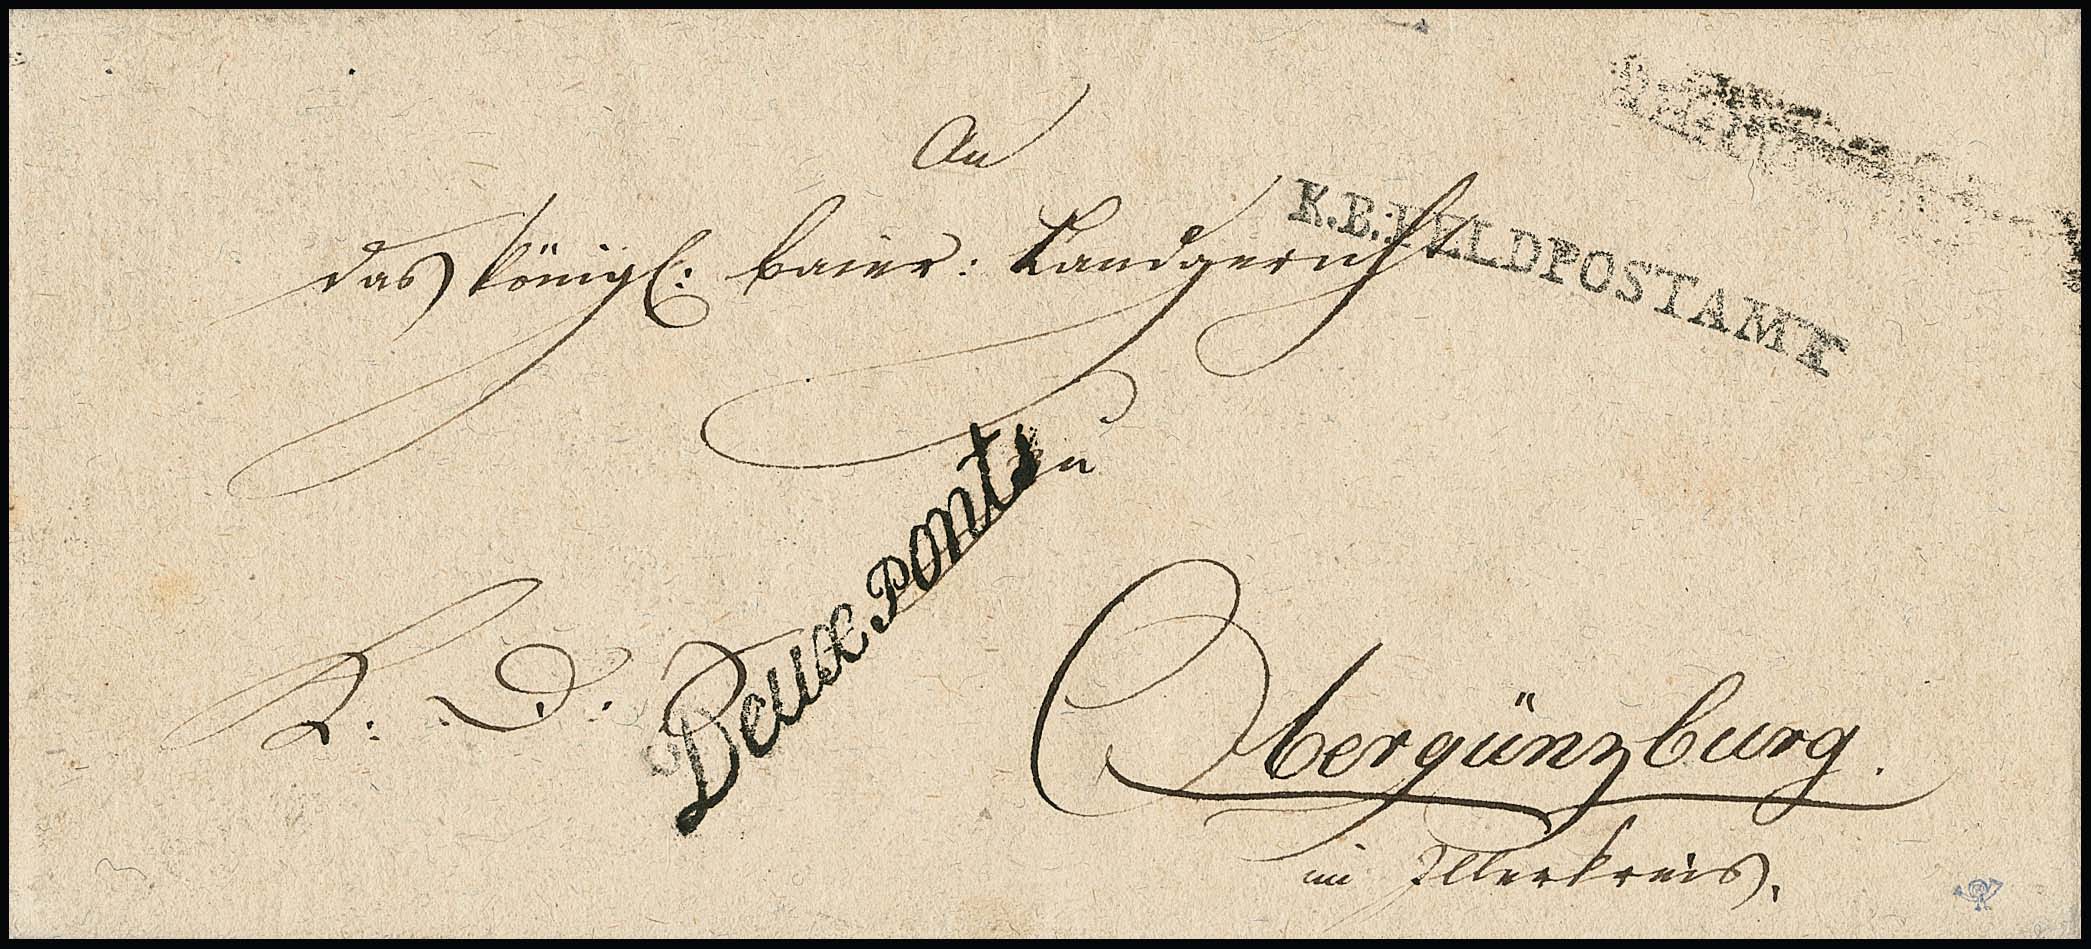 An
das königl: baier: Landgericht
K.B.FELDPOSTAMT
zu
Deux Ponts
K: D. S.
Obergünzburg.
im Illerkreis.